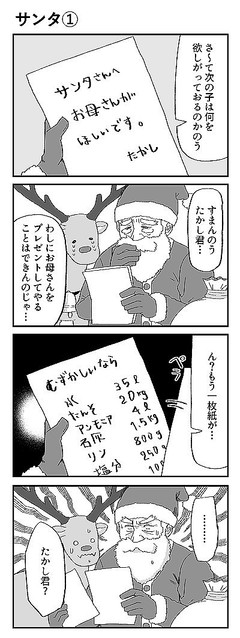 サンタ①
さ～て次の子は何を
欲しがっておるのかのう
サンタさんへ
お母さんが
ほしいです。
たかし
すまんのう
たかし君…
わしにお母さんを
プレゼントしてやる
ことはできんのじゃ…
ん？もう一枚紙が…
ペラ
むずかしいなら
水 35ℓ
たんそ 20kg
アンモニア 4ℓ
石灰 1.5kg
リン 800g
塩分 250g
………
たかし君？